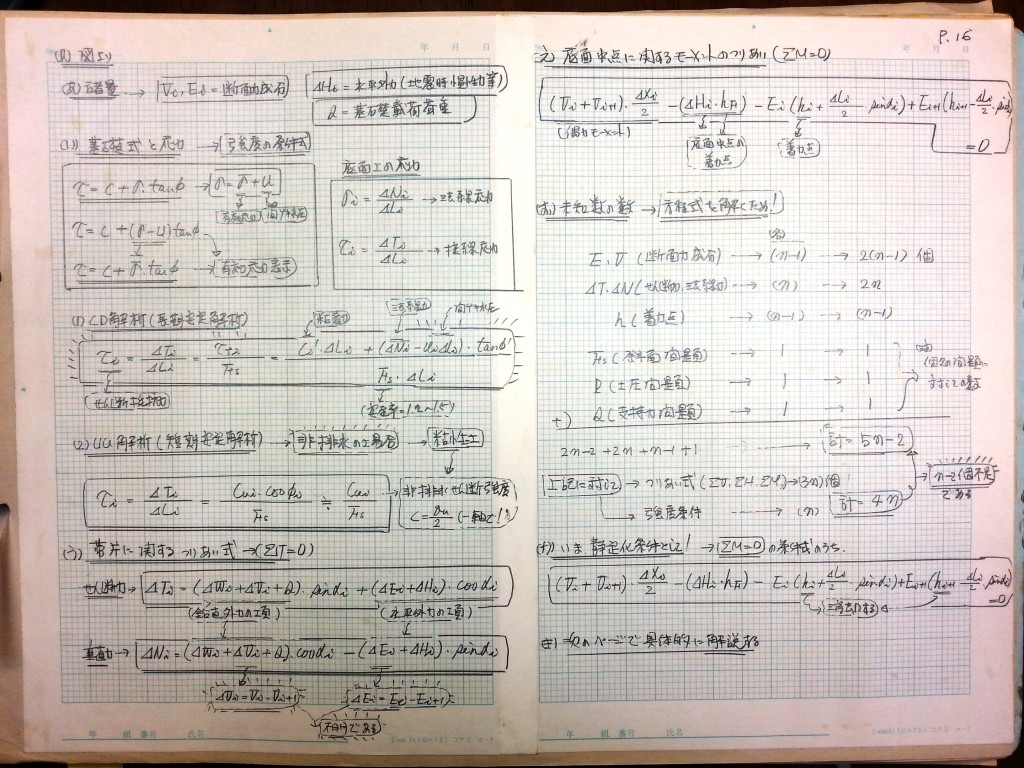 年 月 日
(1) 図より
(あ) 諸量 → Vi, Ei = 断面力成分
ΔHi = 水平外力 (地震時慣性力等)
Q = 基礎載荷荷重
(い) 基礎式と応力 → 強度の条件式
τ = C + σ・tanφ → σ = σ' + u
τ = C + (σ - u) tanφ
τ = C + σ'・tanφ → 有効応力表示
底面上の応力
σi = ΔNi / ΔLi → 法線応力
τi = ΔTi / ΔLi → 接線応力
(1) CD解析 (長期安定解析)
粘着力 法線力 間ゲキ水圧
τi = ΔTi / ΔLi = τfi / Fs = Ci'・ΔLi + (ΔNi - ui ΔLi)・tanφ' / Fs・ΔLi
せん断抵抗力 (安全率 = 1.2~1.5)
(2) UU解析 (短期安定解析) → 非排水の場合 → 粘性土
τi = ΔTi / ΔLi = Cui・cosφi / Fs ≒ Cui / Fs
非排水せん断強度
C = qu / 2 (一軸で!!)
(う) 帯片に関するつりあい式 → (ΣT=0)
せん断力 → ΔTi = (ΔWi + ΔVi + Q)・sindi + (ΔEi + ΔHi)・cosdi
(鉛直外力の項) (水平外力の項)
垂直力 → ΔNi = (ΔWi + ΔVi + Q)・cosdi - (ΔEi + ΔHi)・sindi
ΔVi = Vi - Vi+1 ΔEi = Ei - Ei+1
不明である
年 組 番号 氏名
P.16
年 月 日
え) 底面中点に関するモーメントのつりあい (ΣM=0)
(Vi + Vi+1)・ΔXi / 2 - (ΔHi・hH) - Ei (hi + ΔLi / 2・sindi) + Ei+1 (hi+1 - ΔLi / 2・sindi) = 0
(偶力モーメント) 底面中点の着力点 着力点
(お) 未知数の数 → 方程式を解くため!
E, V (断面力成分) → (n-1) → 2(n-1) 個
ΔT・ΔN (せん断力, 法線力) → (n) → 2n
h (着力点) → (n-1) → (n-1)
Fs (斜面問題) → 1 → 1
P (土圧問題) → 1 → 1
Q (支持力問題) → 1 → 1
個々の問題に対しての数
+)
2n-2 + 2n + n-1 + 1 → 計 = 5n-2
上記に対して → つりあい式 (ΣV, ΣH, ΣM) → (3n) 個
→ 強度条件 → (n) 計 = 4n
n-2個不足である
(か) いま静定化条件として! → ΣM=0 の条件式のうち.
(Vi + Vi+1)・ΔXi / 2 - (ΔHi・hH) - Ei (hi + ΔLi / 2・sindi) + Ei+1 (hi+1 - ΔLi / 2・sindi) = 0
き) 次のページで具体的に解説する
年 組 番号 氏名